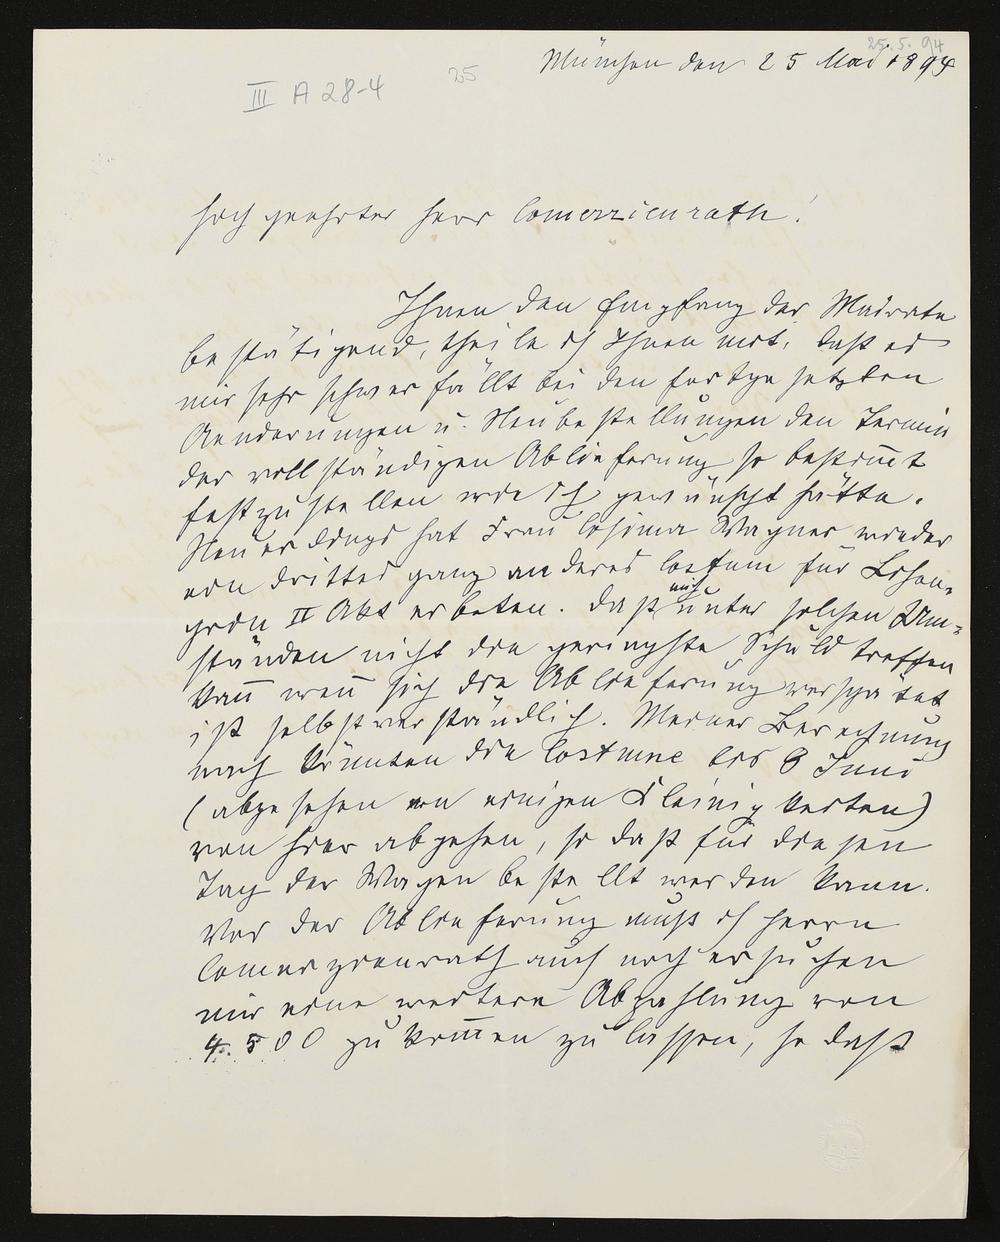 25. 5. 94
München den 25 Mai 1894
III A 28-4
25
Hoch geehrter Herr Comerzienrath!
Ihnen den Empfang der
bestätigend, theile ich Ihnen mit, daß es
mir sehr schwer fällt bei den fortgesetzten
Aenderungen u. Neubestellungen den Termin
der vollständigen Ablieferung so bestimt
festzustellen wie ich gewünscht hätte.
Neuerdings hat Frau Cosima Wagner wieder
ein drittes ganz anderes Costum für Lohen=
grin II Akt erbeten. Daß mich unter solchen Um=
ständen nicht die geringste Schuld treffen
kan̄ wen̄ sich die Ablieferung verspätet
ist selbstverständlich. Meiner Berechnung
nach könnten die Costume bis 8 Juni
(abgesehen von einigen Kleinigkeiten)
von hier abgehen, so daß für diesen
Tag der Wagen bestellt werden kann.
Vor der Ablieferung muß ich Herrn
Comerzienrath auch noch ersuchen
mir eine weitere Abzahlung von
4.500 zukom̄en zu lassen, so daß